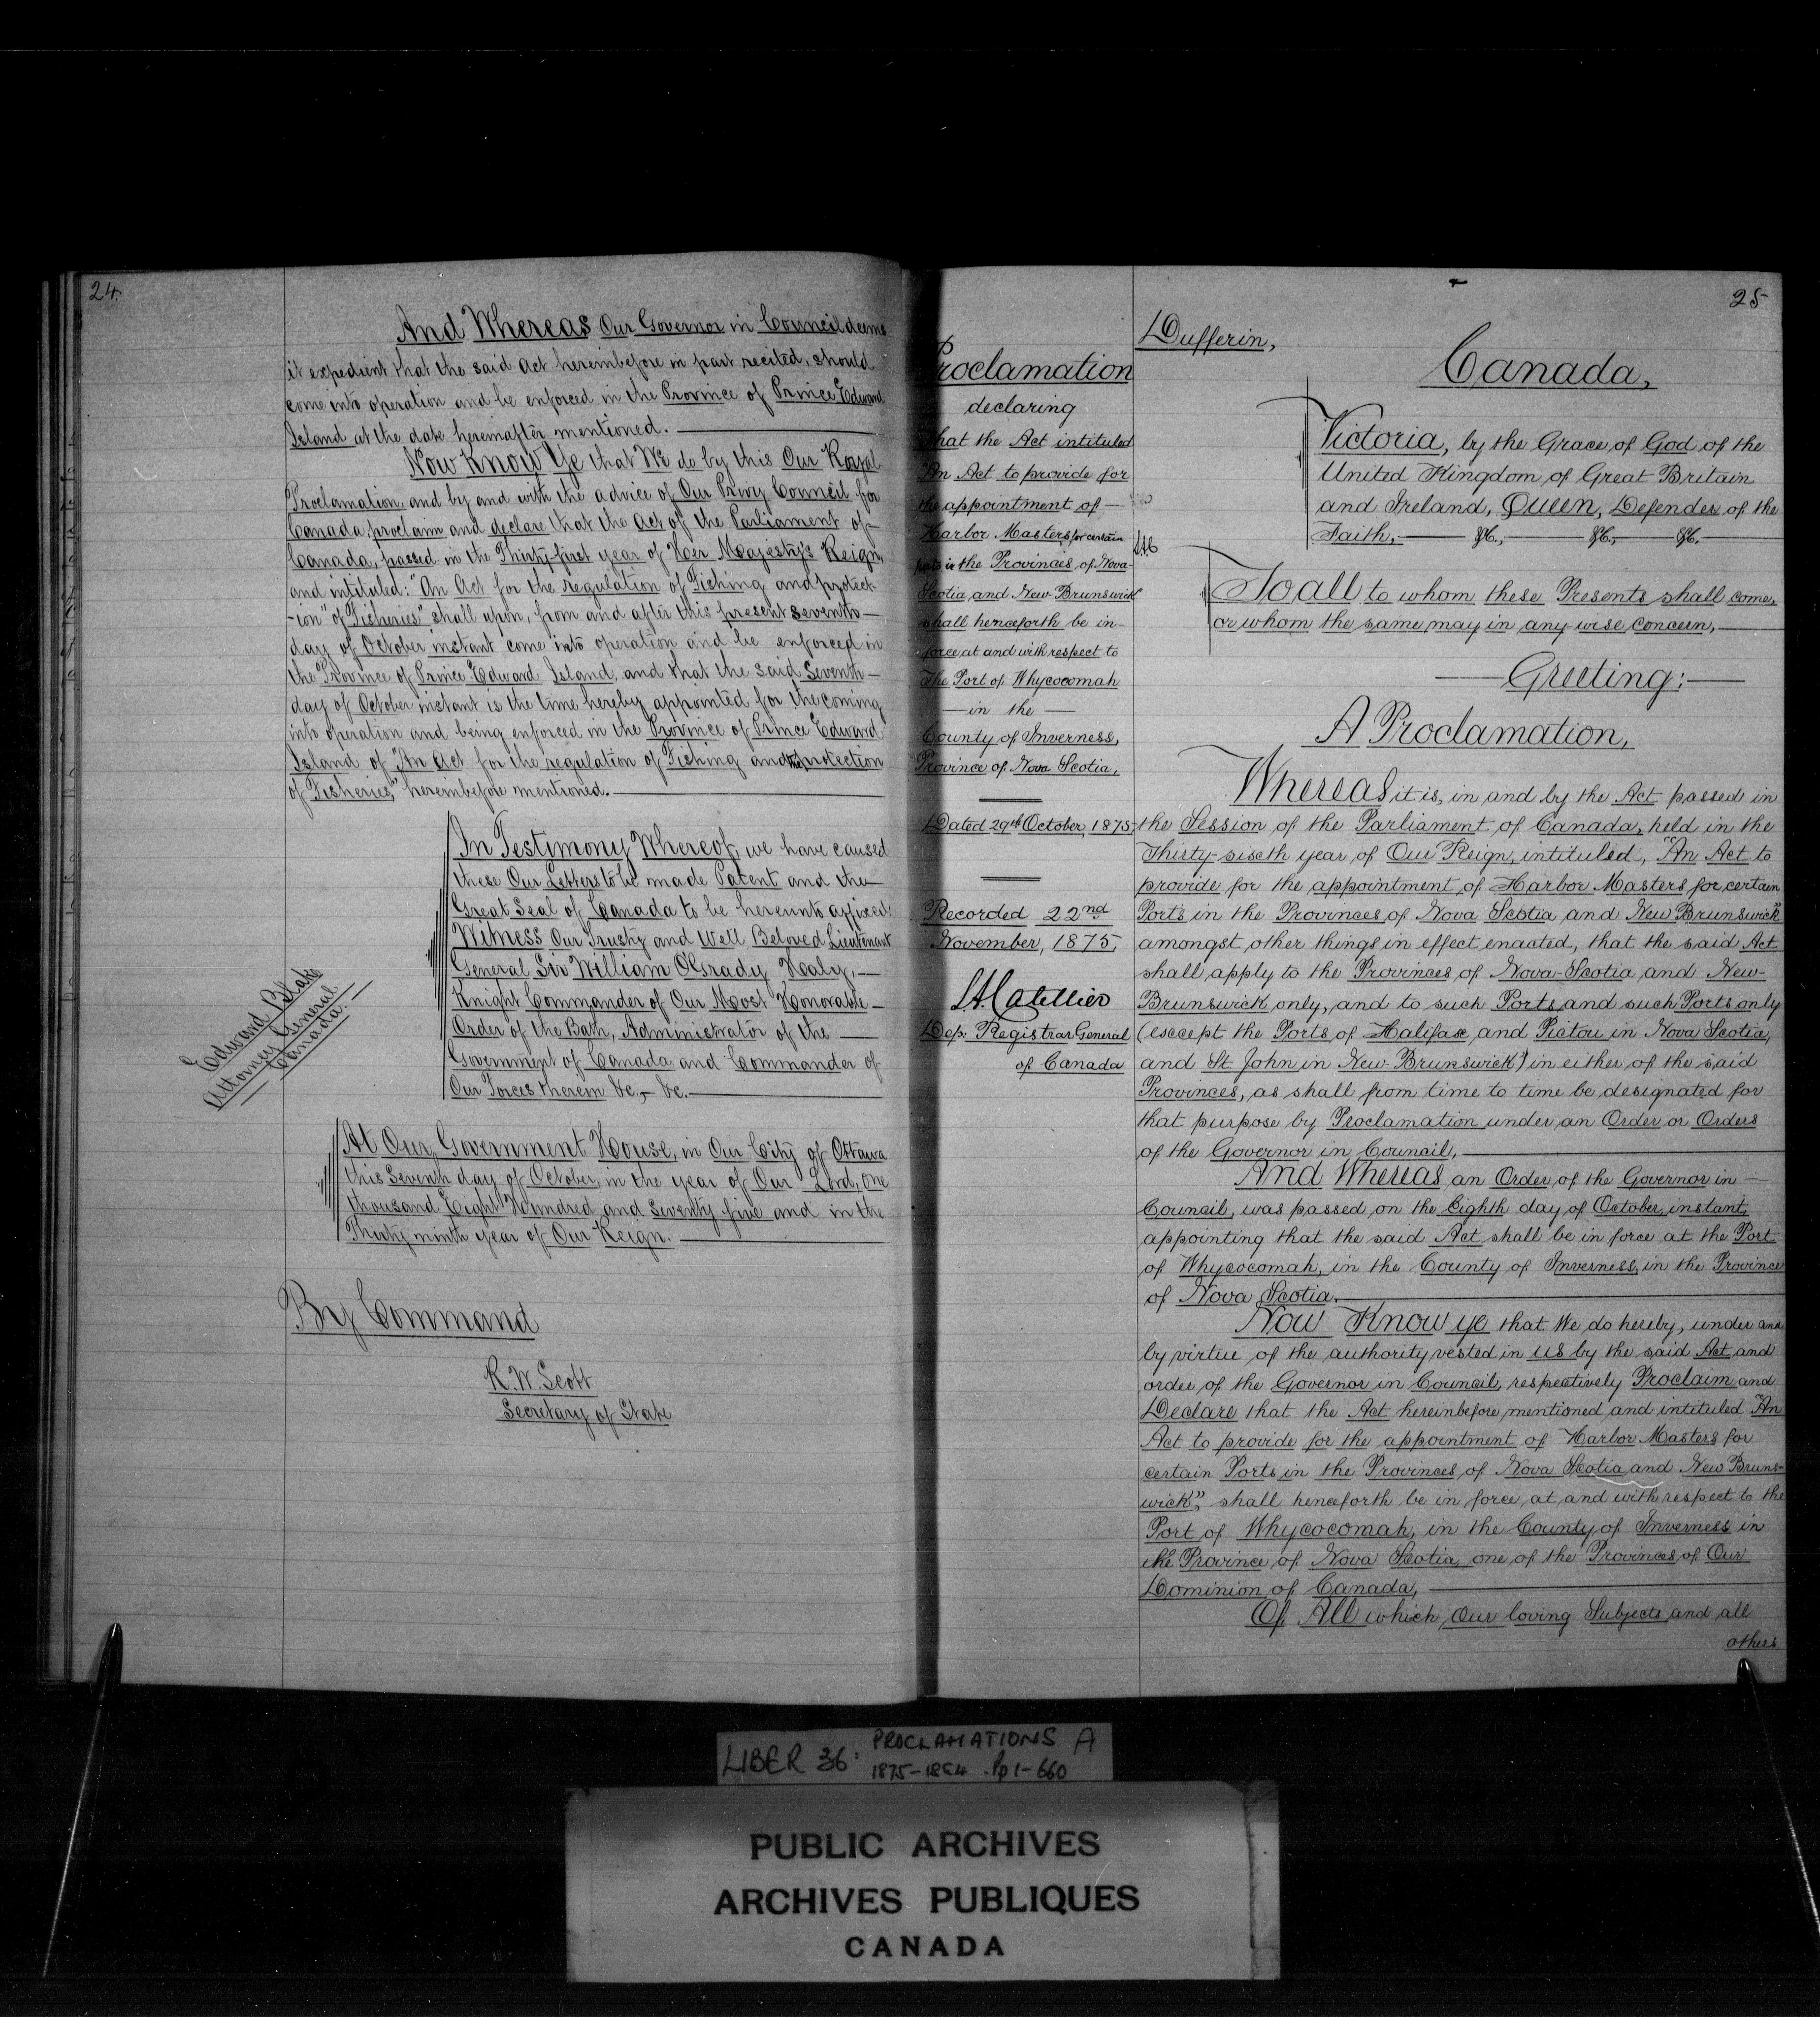 24.
And Whereas Our Governor in Council deems
it expedient that the said Act hereinbefore in part recited, should
come into operation and be enforced in the Province of Prince Edward
Island at the date hereinafter mentioned.
Now Know Ye that We do by this Our Royal
Proclamation, and by and with the advice of Our Privy Council for
Canada, proclaim and declare that the Act of the Parliament of
Canada, passed in the Thirty-first year of Her Majesty's Reign,
and intituled: "An Act for the regulation of Fishing and protect-
-ion" of Fisheries" shall upon, from and after this present seventh
day of October instant come into operation and be enforced in
the Province of Prince Edward Island, and that the said Seventh
day of October instant is the time hereby appointed for the coming
into operation and being enforced in the Province of Prince Edward
Island of "An Act for the regulation of Fishing and the protection
of Fisheries," hereinbefore mentioned.
In Testimony Whereof, we have caused
these Our Letters to be made Patent and the
Great Seal of Canada to be hereunto affixed:
Witness Our Trusty and Well Beloved Lieutenant
General Sir William O'Grady Haly,
Knight Commander of Our Most Honorable
Order of the Bath, Administrator of the
Government of Canada and Commander of
Our Forces therein &c, &c.
Edward Blake
Attorney General
Canada.
At Our Government House, in Our City of Ottawa
this Seventh day of October, in the year of Our Lord, One
thousand Eight Hundred and seventy five and in the
Thirty ninth year of Our Reign.
By Command
R. W. Scott
Secretary of State
25
Proclamation
declaring
That the Act intituled
"An Act to provide for
the appointment of
Harbor Masters for certain
ports in the Provinces of Nova
Scotia and New Brunswick"
shall henceforth be in
force, at and with respect to
The Port of Whycocomah
in the
County of Inverness,
Province of Nova Scotia,
Dated 29th October, 1875,
Recorded 22nd
November, 1875,
LACatellier
Dep. Registrar General
of Canada
Dufferin,
Canada,
Victoria, by the Grace of God of the
United Kingdom of Great Britain
and Ireland, Queen, Defender of the
Faith, &c., &c., &c.
To all to whom these Presents shall come,
or whom the same may in any wise concern,
Greeting:
A Proclamation,
Whereas it is, in and by the Act passed in
the Session of the Parliament of Canada, held in the
Thirty-sixth year of Our Reign, intituled, "An Act to
provide for the appointment of Harbor Masters for certain
Ports in the Provinces of Nova Scotia and New Brunswick"
amongst other things in effect enacted, that the said Act
shall apply to the Provinces of Nova-Scotia and New-
Brunswick only, and to such Ports, and such Ports only
(except the Ports of Halifax, and Pictou in Nova Scotia,
and St. John in New-Brunswick) in either of the said
Provinces, as shall from time to time be designated for
that purpose by Proclamation under an Order or Orders
of the Governor in Council,
And Whereas an Order of the Governor in
Council, was passed on the Eighth day of October, instant,
appointing that the said Act shall be in force at the Port
of Whycocomah, in the County of Inverness, in the Province
of Nova Scotia.
Now Know ye that We do hereby, under and
by virtue of the authority vested in us by the said Act and
order of the Governor in Council, respectively Proclaim and
Declare that the Act hereinbefore mentioned and intituled "An
Act to provide for the appointment of Harbor Masters for
certain Ports in the Provinces of Nova Scotia and New Bruns-
wick", shall henceforth be in force, at and with respect to the
Port of Whycocomah, in the County of Inverness in
the Province of Nova Scotia, one of the Provinces of Our
Dominion of Canada,
Of All which, Our loving Subjects and all
others
LIBER 36: PROCLAMATIONS A
1875-1884. Pp 1-660
PUBLIC ARCHIVES
ARCHIVES PUBLIQUES
CANADA